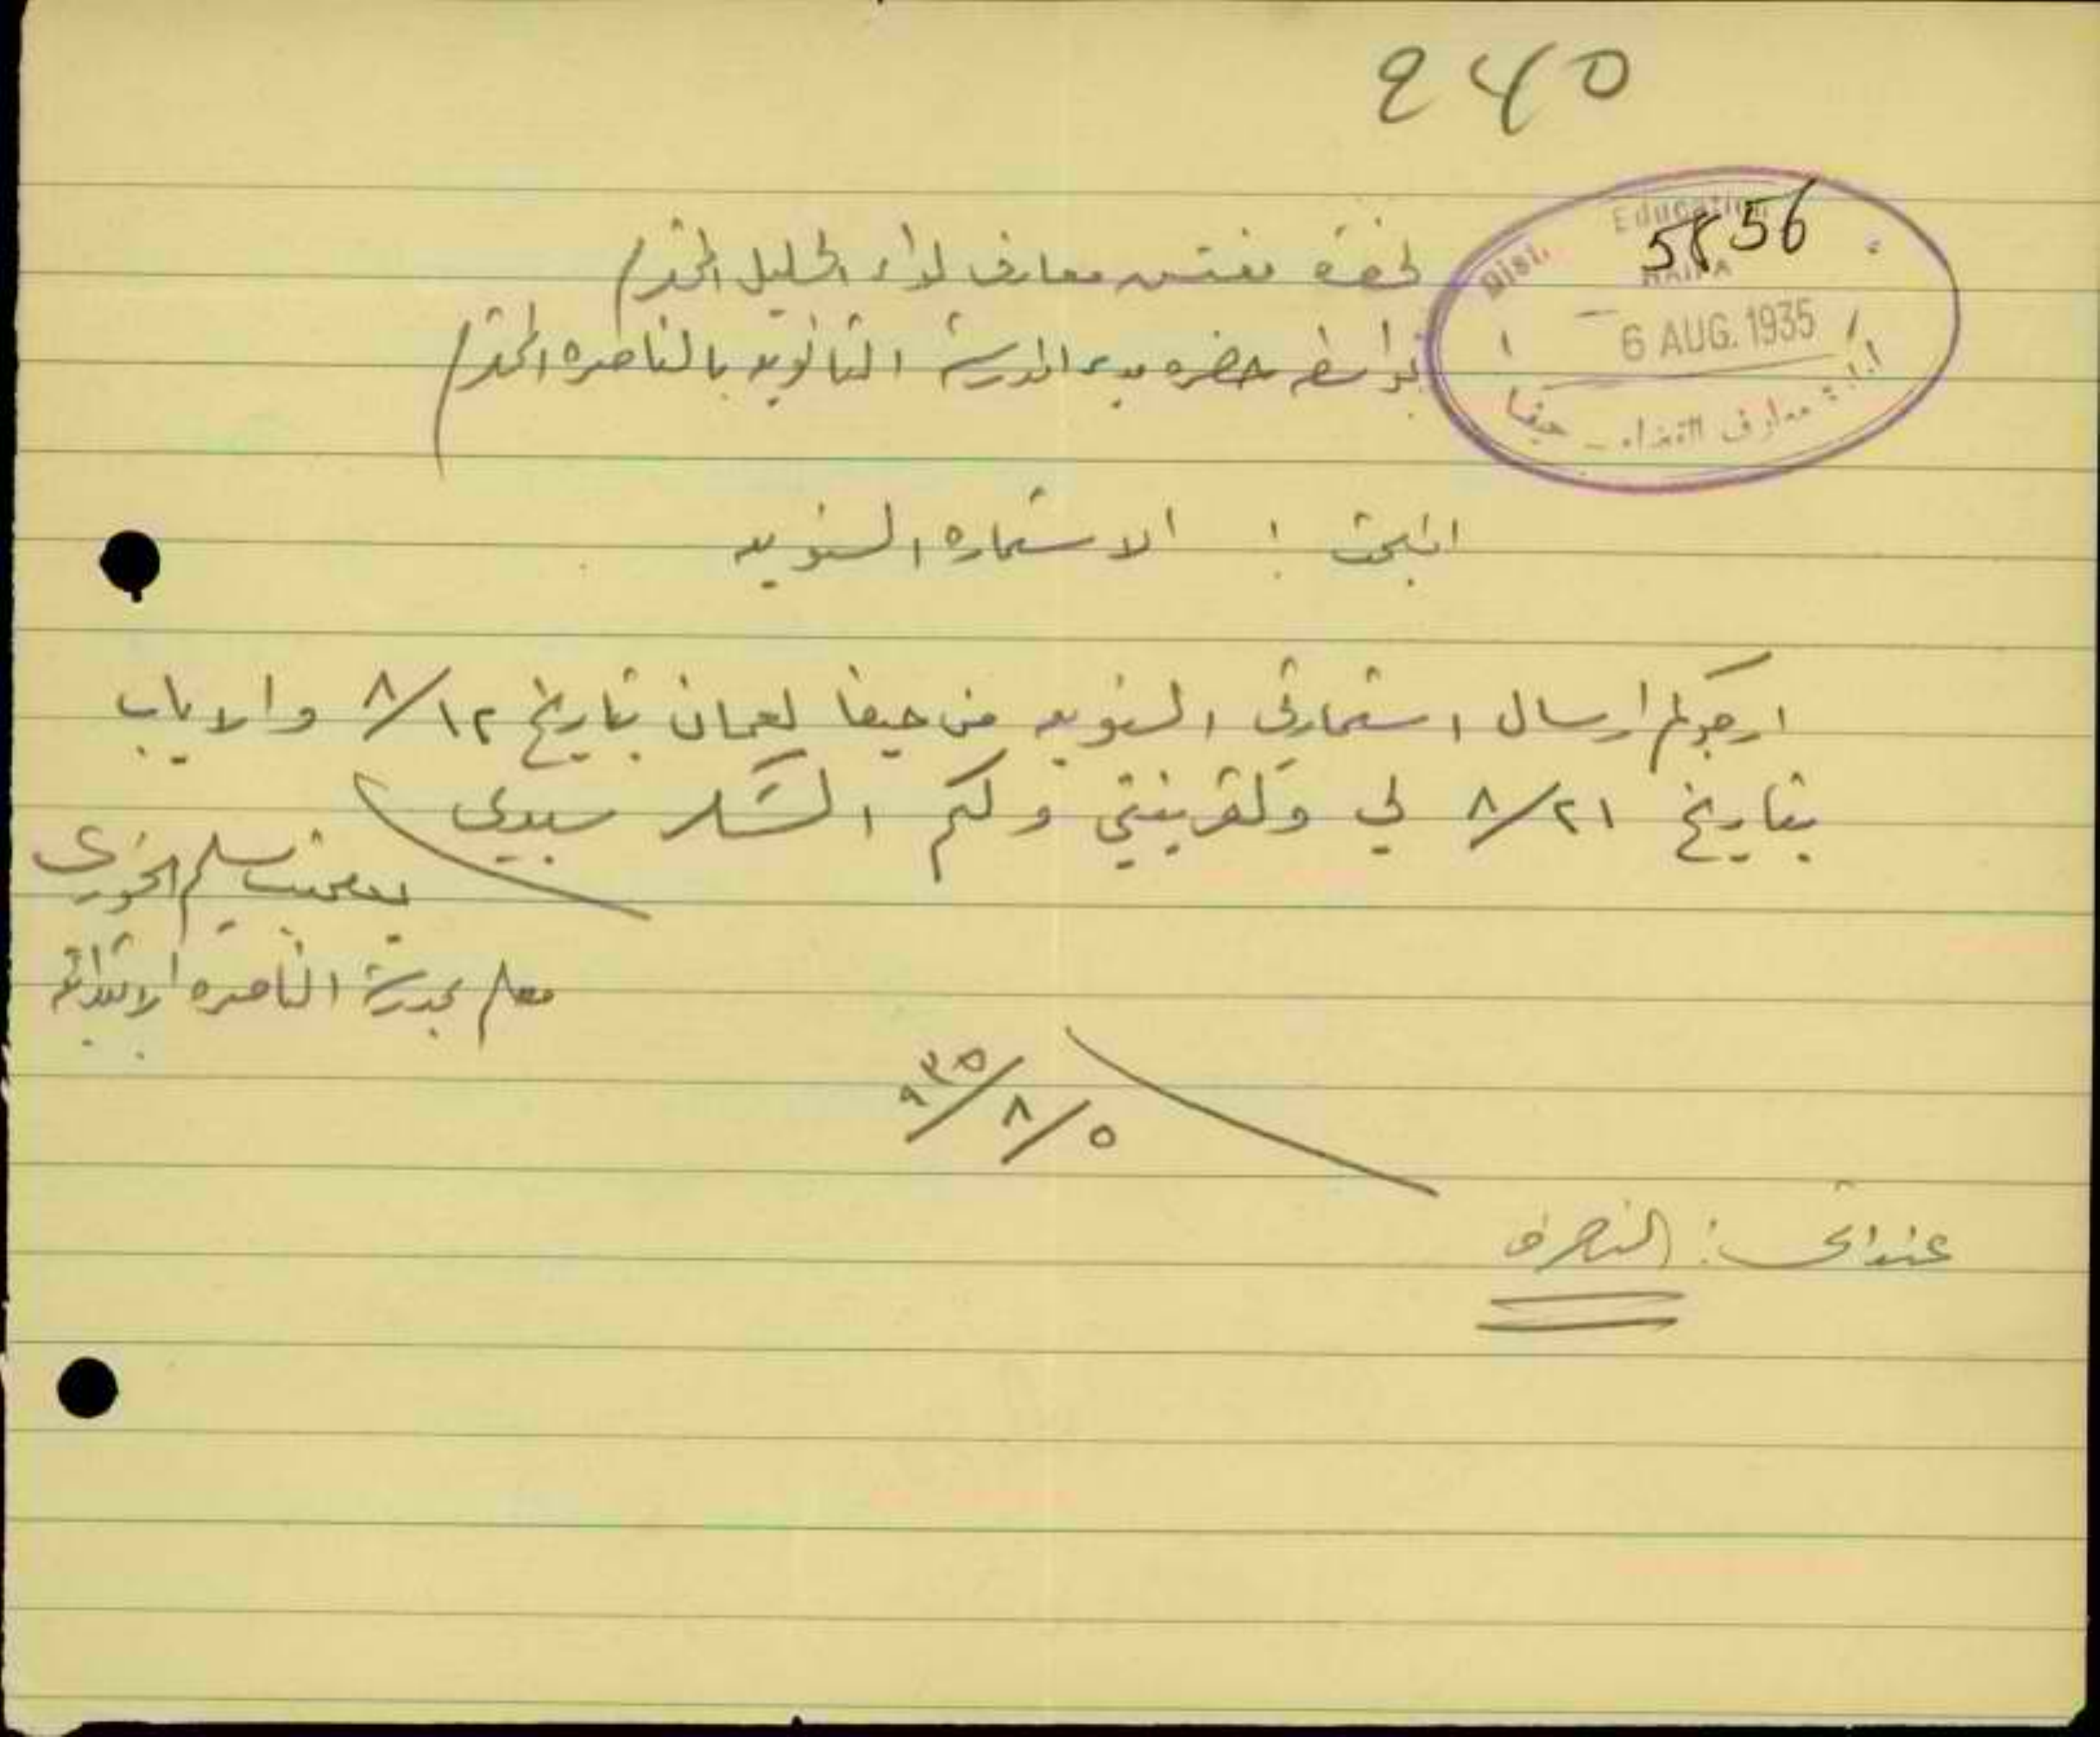 240
Dist. Education
5856
HAIFA
6 AUG. 1935
ادارة معارف القضاء - حيفا
لحضرة مفتش معارف لواء الجليل المحترم
بواسطة حضره مدير المدرسة الثانويه بالناصره المحترم
المبحث : الاستماره السنويه
ارجوكم ارسال استمارتي السنويه من حيفا لعمان بتاريخ ٨/١٢ والاياب
بتاريخ ٨/٢١ لي ولقرينتي ولكم الشكر سيدي
سليم الخوري
معلم بمدرسة الناصره الابتدائيه
٩٣٥/٨/٥
عنواني : الناصره